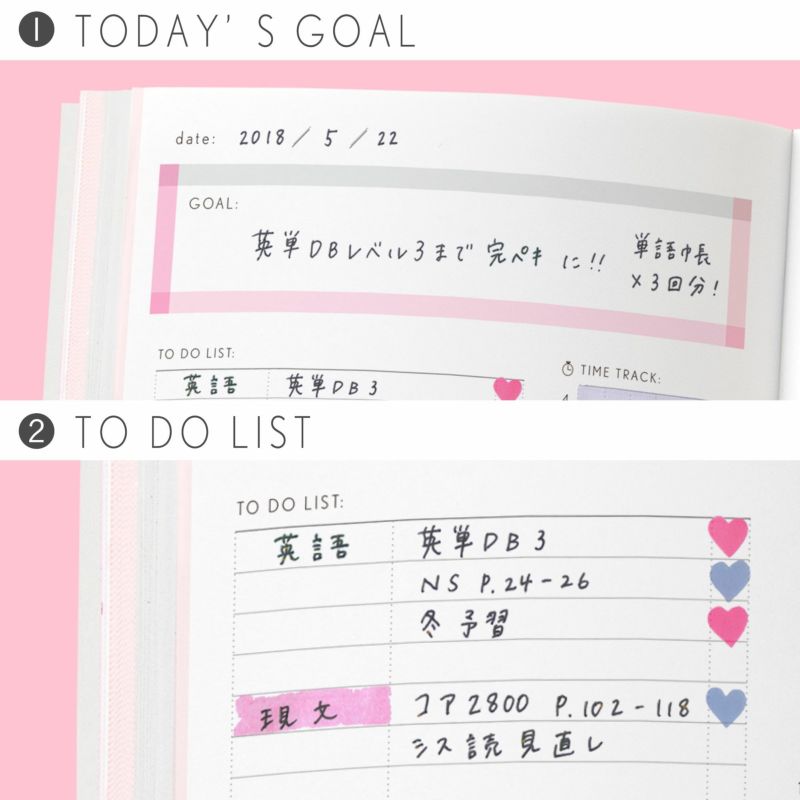 1 TODAY'S GOAL
date: 2018 / 5 / 22
GOAL:
英単DBレベル3まで 完ペキ に!! 単語巾長
×3回分!
TO DO LIST:
TIME TRACK:
英語 英単DB3
4
2 TO DO LIST
TO DO LIST:
英語 英単DB3
NS P.24-26
冬 予習
現文 コア2800 P.102-118
シス読見直し